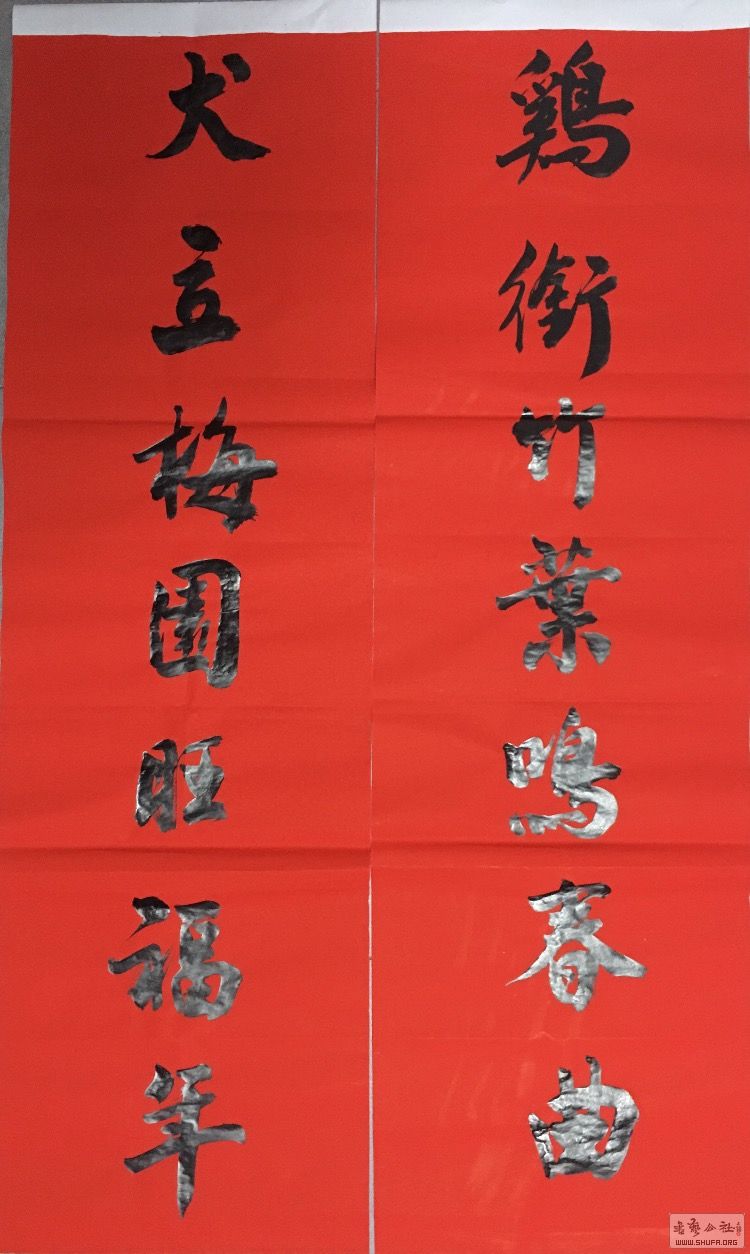 鷄銜竹葉鳴春曲
犬立梅園旺福年
书艺公社
WWW.SHUFA.ORG